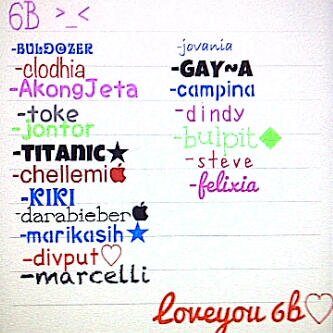 6B >_<
-BULDOZER
-clodhia
-AkongJeta
-toke
-jontor
-TITANIC★
-chellemi
-KIKI
-darabieber
-marikasih★
-divput♡
-marcelli
-jovania
-GAY~A
-campina
-dindy
-bulpit◆
-steve
-felixia
loveyou 6b♡